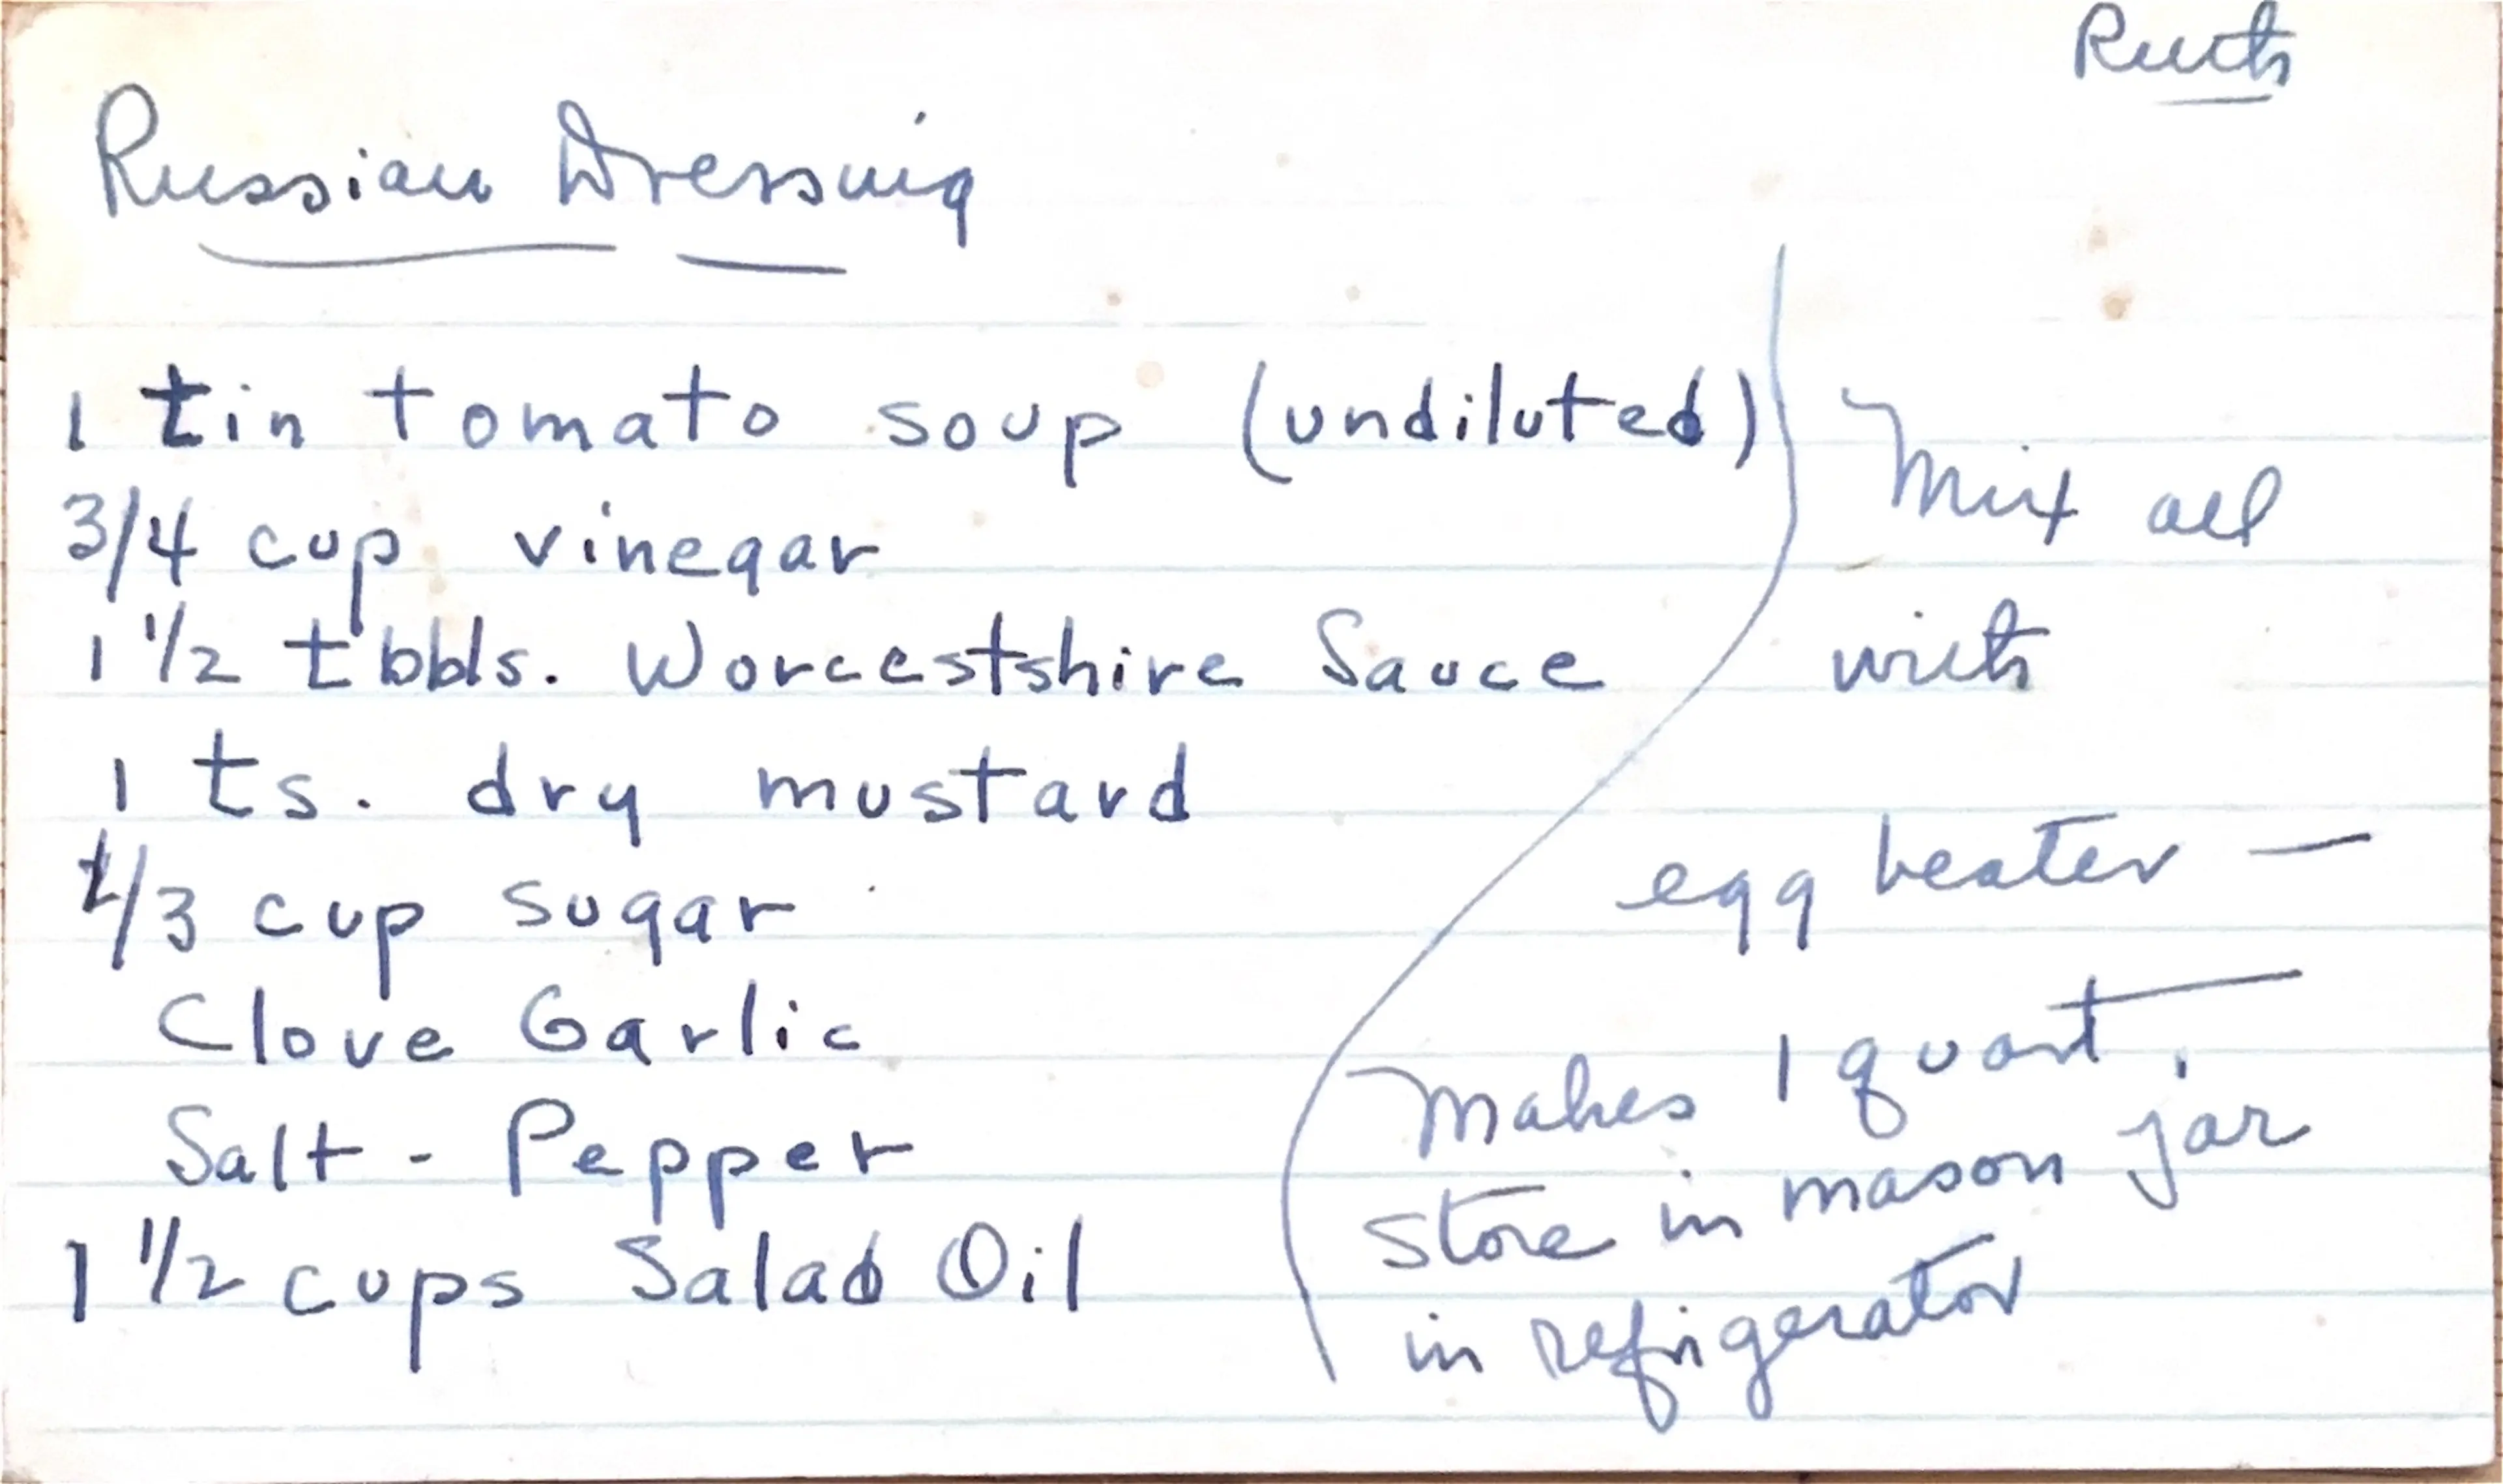 Ruth
Russian Dressing
1 tin tomato soup (undiluted)
3/4 cup vinegar
1 1/2 tbbls. Worcestshire Sauce
1 ts. dry mustard
/3 cup sugar
Clove Garlic
Salt - Pepper
1 1/2 cups Salad Oil
Mix all
with
egg beater —
Makes 1 quart.
store in mason jar
in refrigerator